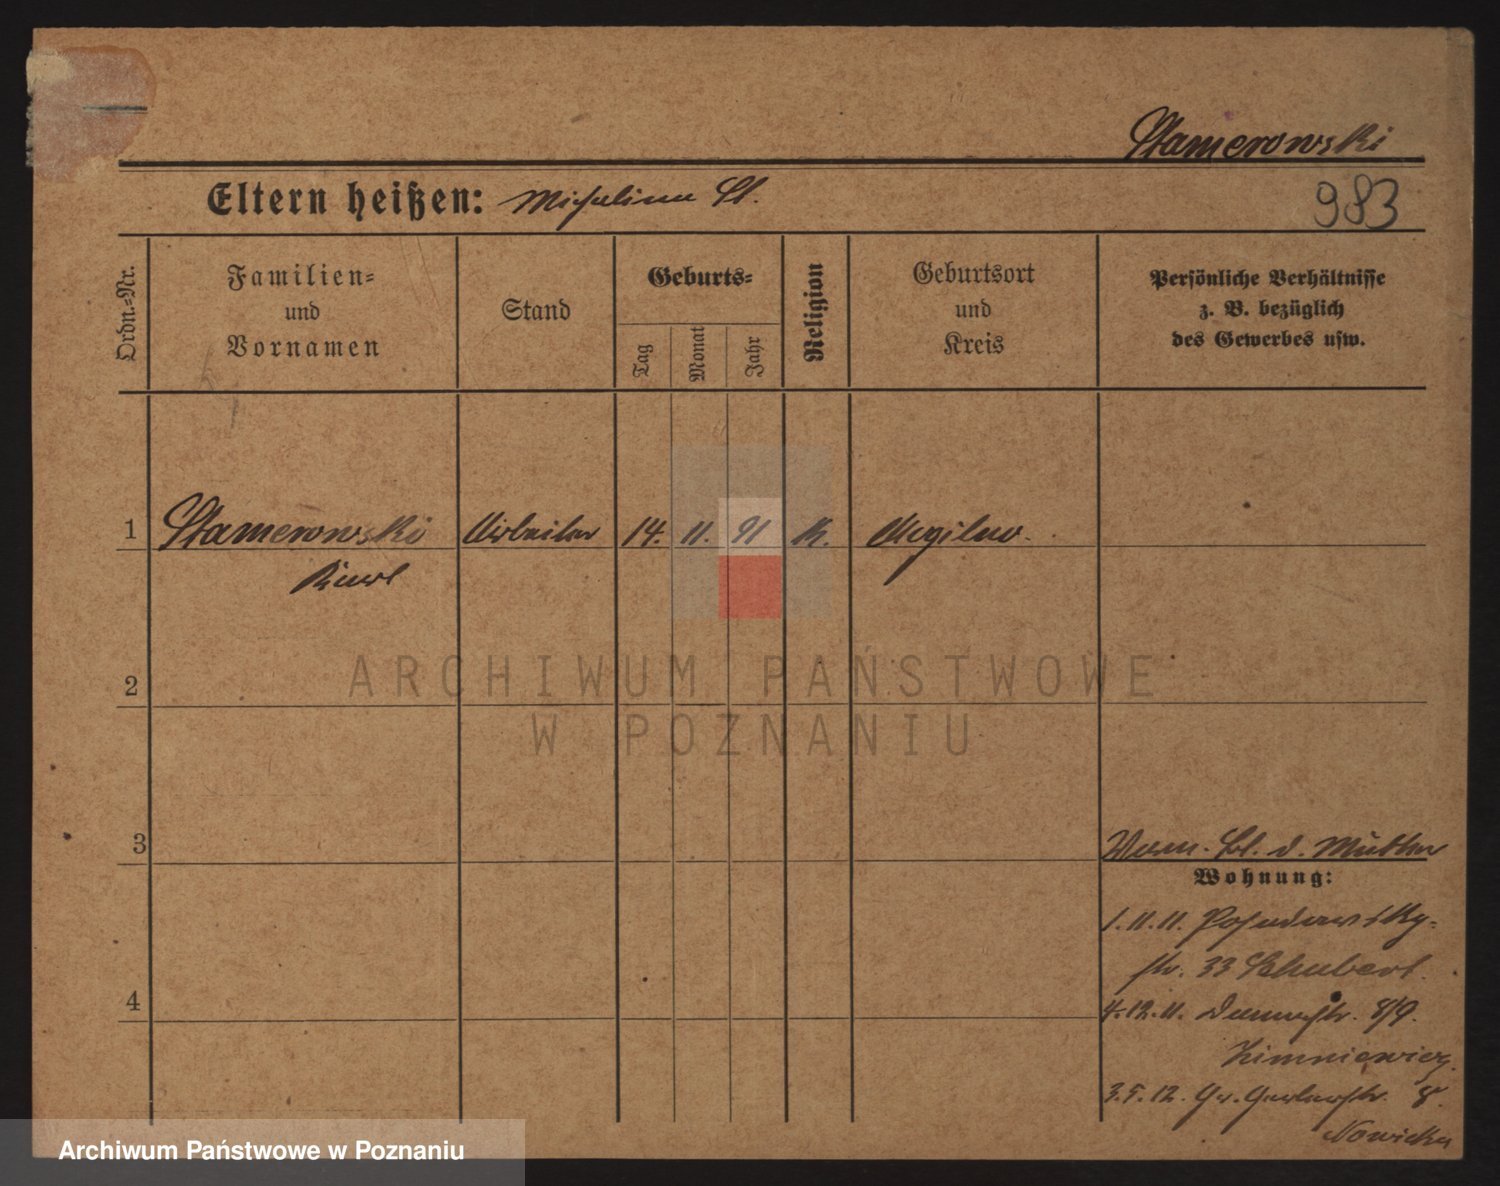 Stamerowski
Eltern heißen: Michalina St.
983
Ordn.-Nr.
Familien-
und
Vornamen
Stand
Geburts-
Tag
Monat
Jahr
Religion
Geburtsort
und
Kreis
Persönliche Verhältnisse
z. B. bezüglich
des Gewerbes usw.
1 Stamerowski Arbeiter 14. 11. 91 k. Mogilno.
Karl
2
3
Bl. d. Mutter
Wohnung:
1.11.11. Posadowsky-
str. 33 Schubert.
4
4.12.11. Dammstr. 8/9.
Zimniewicz.
3.5.12. Gr. Gerberstr. 8.
Nowicka
ARCHIWUM PAŃSTWOWE
W POZNANIU
Archiwum Państwowe w Poznaniu